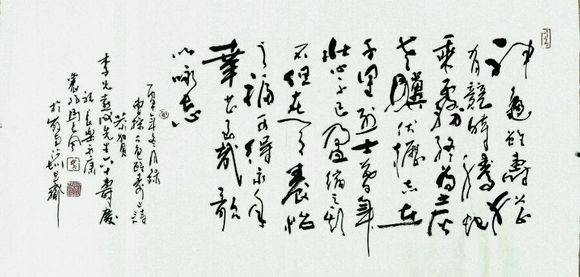 神龜雖壽猶
有競時騰蛇
乘霧終為土灰
老驥伏櫪志在
千里烈士暮年
壯心不已盈縮之期
不但在天養怡
之福可得永年
幸甚至哉歌
以詠志
年冬月錄
曹操之龜雖壽之詩
恭賀
李先生六十壽慶
祝長樂永康